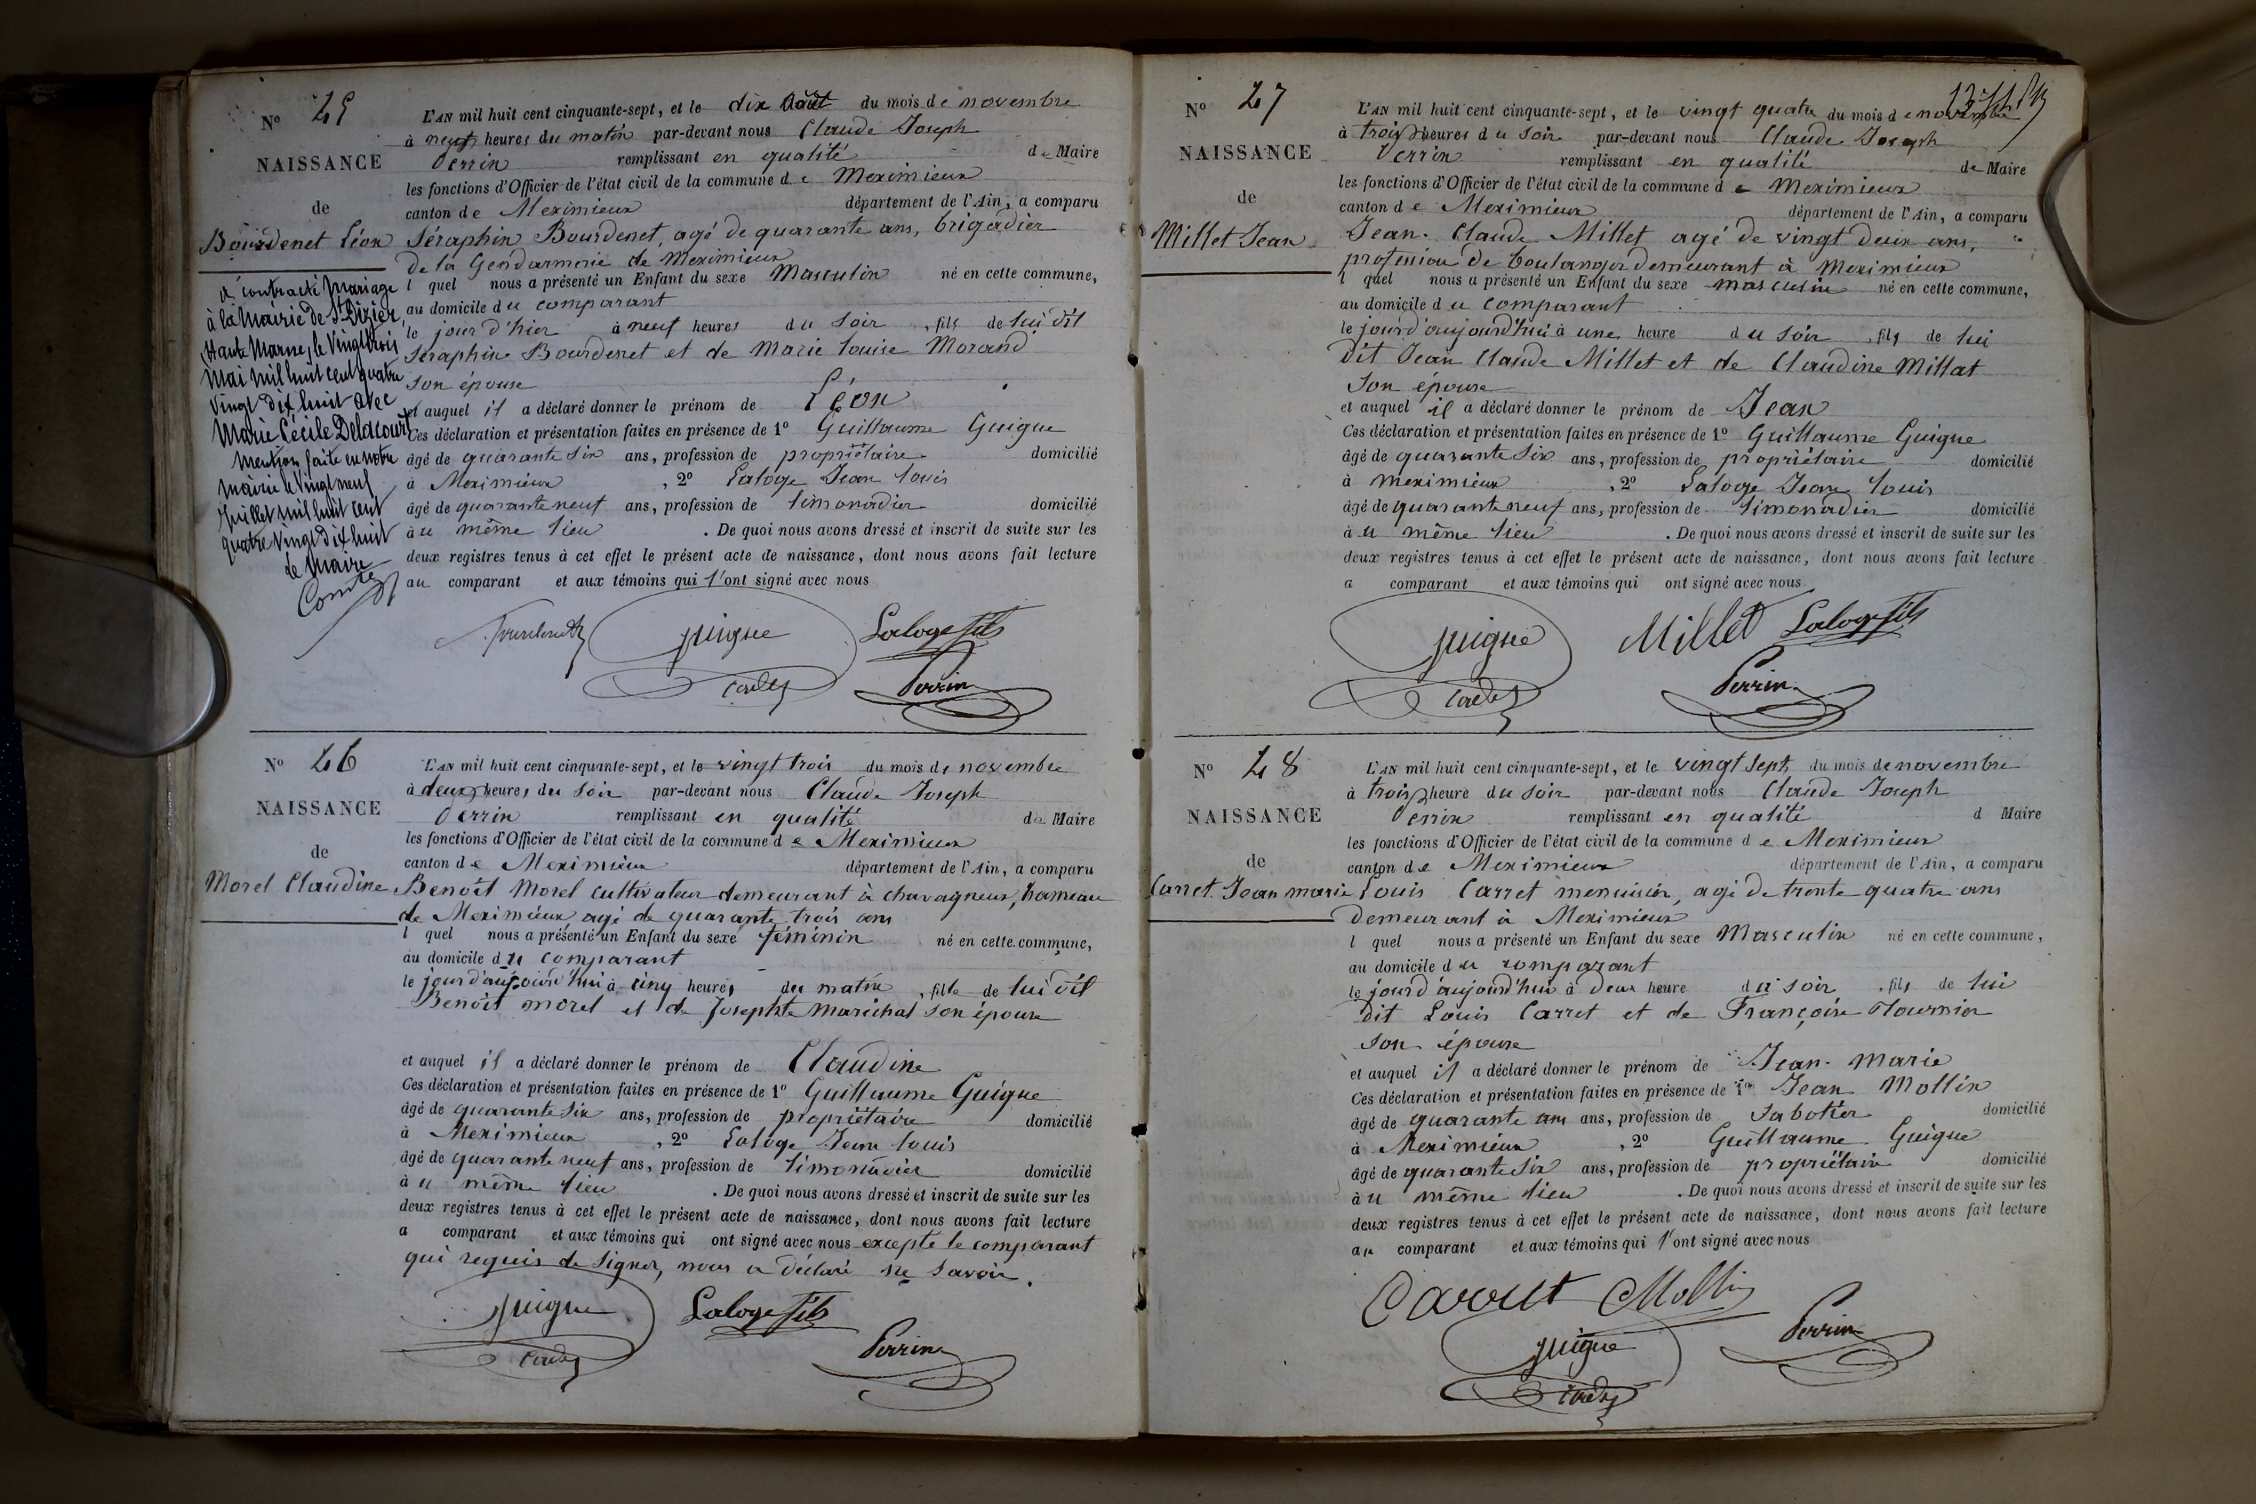 N° 45
NAISSANCE
de
Bourdenet Léon
a contracté mariage
à la Mairie de St Dizier,
Haute Marne, le Vingt trois
Mai mil huit cent quatre
vingt dix huit avec
Marie Cécile Delacourt
Mention faite en notre
mairie le vingt neuf
Juillet mil huit cent
quatre vingt dix huit
Le Maire
L'AN mil huit cent cinquante-sept, et le dix août du mois de novembre
à neuf heures du matin par-devant nous Claude Joseph
Perrin remplissant en qualité de Maire
les fonctions d'Officier de l'état civil de la commune de Meximieux
canton de Meximieux département de l'Ain, a comparu
Séraphin Bourdenet, agé de quarante ans, brigadier
de la Gendarmerie de Meximieux
l quel nous a présenté un Enfant du sexe Masculin né en cette commune,
au domicile du comparant
le jour d'hier à neuf heures du soir, fils de lui dit
Séraphin Bourdenet et de Marie Louise Morand
son épouse
et auquel il a déclaré donner le prénom de Léon
Ces déclaration et présentation faites en présence de 1° Guillaume Guigue
âgé de quarante six ans, profession de propriétaire domicilié
à Meximieux, 2° Laloge Jean Louis
âgé de quarante neuf ans, profession de limonadier domicilié
au même lieu. De quoi nous avons dressé et inscrit de suite sur les
deux registres tenus à cet effet le présent acte de naissance, dont nous avons fait lecture
au comparant et aux témoins qui l'ont signé avec nous
Guigue Laloge fils
Perrin
N° 46
NAISSANCE
de
Morel Claudine
L'AN mil huit cent cinquante-sept, et le vingt trois du mois de novembre
à deux heures du soir par-devant nous Claude Joseph
Perrin remplissant en qualité de Maire
les fonctions d'Officier de l'état civil de la commune de Meximieux
canton de Meximieux département de l'Ain, a comparu
Benoît Morel cultivateur demeurant à chavagneux, hameau
de Meximieux agé de quarante trois ans
l quel nous a présenté un Enfant du sexe féminin né en cette commune,
au domicile du comparant
le jour d'aujourd'hui à cinq heures du matin, fille de lui dit
Benoît Morel et de Josephte Maréchal son épouse
et auquel il a déclaré donner le prénom de Claudine
Ces déclaration et présentation faites en présence de 1° Guillaume Guigue
âgé de quarante six ans, profession de propriétaire domicilié
à Meximieux, 2° Laloge Jean Louis
âgé de quarante neuf ans, profession de limonadier domicilié
au même lieu. De quoi nous avons dressé et inscrit de suite sur les
deux registres tenus à cet effet le présent acte de naissance, dont nous avons fait lecture
a comparant et aux témoins qui ont signé avec nous excepté le comparant
qui requis de signer, nous a déclaré ne savoir.
Guigue Laloge fils
Perrin
N° 47
NAISSANCE
de
Millet Jean
L'AN mil huit cent cinquante-sept, et le vingt quatre du mois de novembre
à trois heures du soir par-devant nous Claude Joseph
Perrin remplissant en qualité de Maire
les fonctions d'Officier de l'état civil de la commune de Meximieux
canton de Meximieux département de l'Ain, a comparu
Jean-Claude Millet agé de vingt deux ans,
profession de boulanger demeurant à Meximieux
l quel nous a présenté un Enfant du sexe masculin né en cette commune,
au domicile du comparant
le jour d'aujourd'hui à une heure du soir, fils de lui
dit Jean Claude Millet et de Claudine Millat
son épouse
et auquel il a déclaré donner le prénom de Jean
Ces déclaration et présentation faites en présence de 1° Guillaume Guigue
âgé de quarante six ans, profession de propriétaire domicilié
à Meximieux, 2° Laloge Jean Louis
âgé de quarante neuf ans, profession de limonadier domicilié
au même lieu. De quoi nous avons dressé et inscrit de suite sur les
deux registres tenus à cet effet le présent acte de naissance, dont nous avons fait lecture
a comparant et aux témoins qui ont signé avec nous
Guigue Millet Laloge fils
Perrin
N° 48
NAISSANCE
de
Carret Jean marie
L'AN mil huit cent cinquante-sept, et le vingt sept du mois de novembre
à trois heure du soir par-devant nous Claude Joseph
Perrin remplissant en qualité d Maire
les fonctions d'Officier de l'état civil de la commune de Meximieux
canton de Meximieux département de l'Ain, a comparu
Louis Carret menuisier, agé de trente quatre ans
demeurant à Meximieux
l quel nous a présenté un Enfant du sexe Masculin né en cette commune,
au domicile du comparant
le jour d'aujourd'hui à deux heure du soir, fils de lui
dit Louis Carret et de Françoise Tournier
son épouse
et auquel il a déclaré donner le prénom de Jean-Marie
Ces déclaration et présentation faites en présence de 1° Jean Mollin
âgé de quarante ans ans, profession de sabotier domicilié
à Meximieux, 2° Guillaume Guigue
âgé de quarante six ans, profession de propriétaire domicilié
au même lieu. De quoi nous avons dressé et inscrit de suite sur les
deux registres tenus à cet effet le présent acte de naissance, dont nous avons fait lecture
au comparant et aux témoins qui l'ont signé avec nous
Carret Mollin
Guigue Perrin